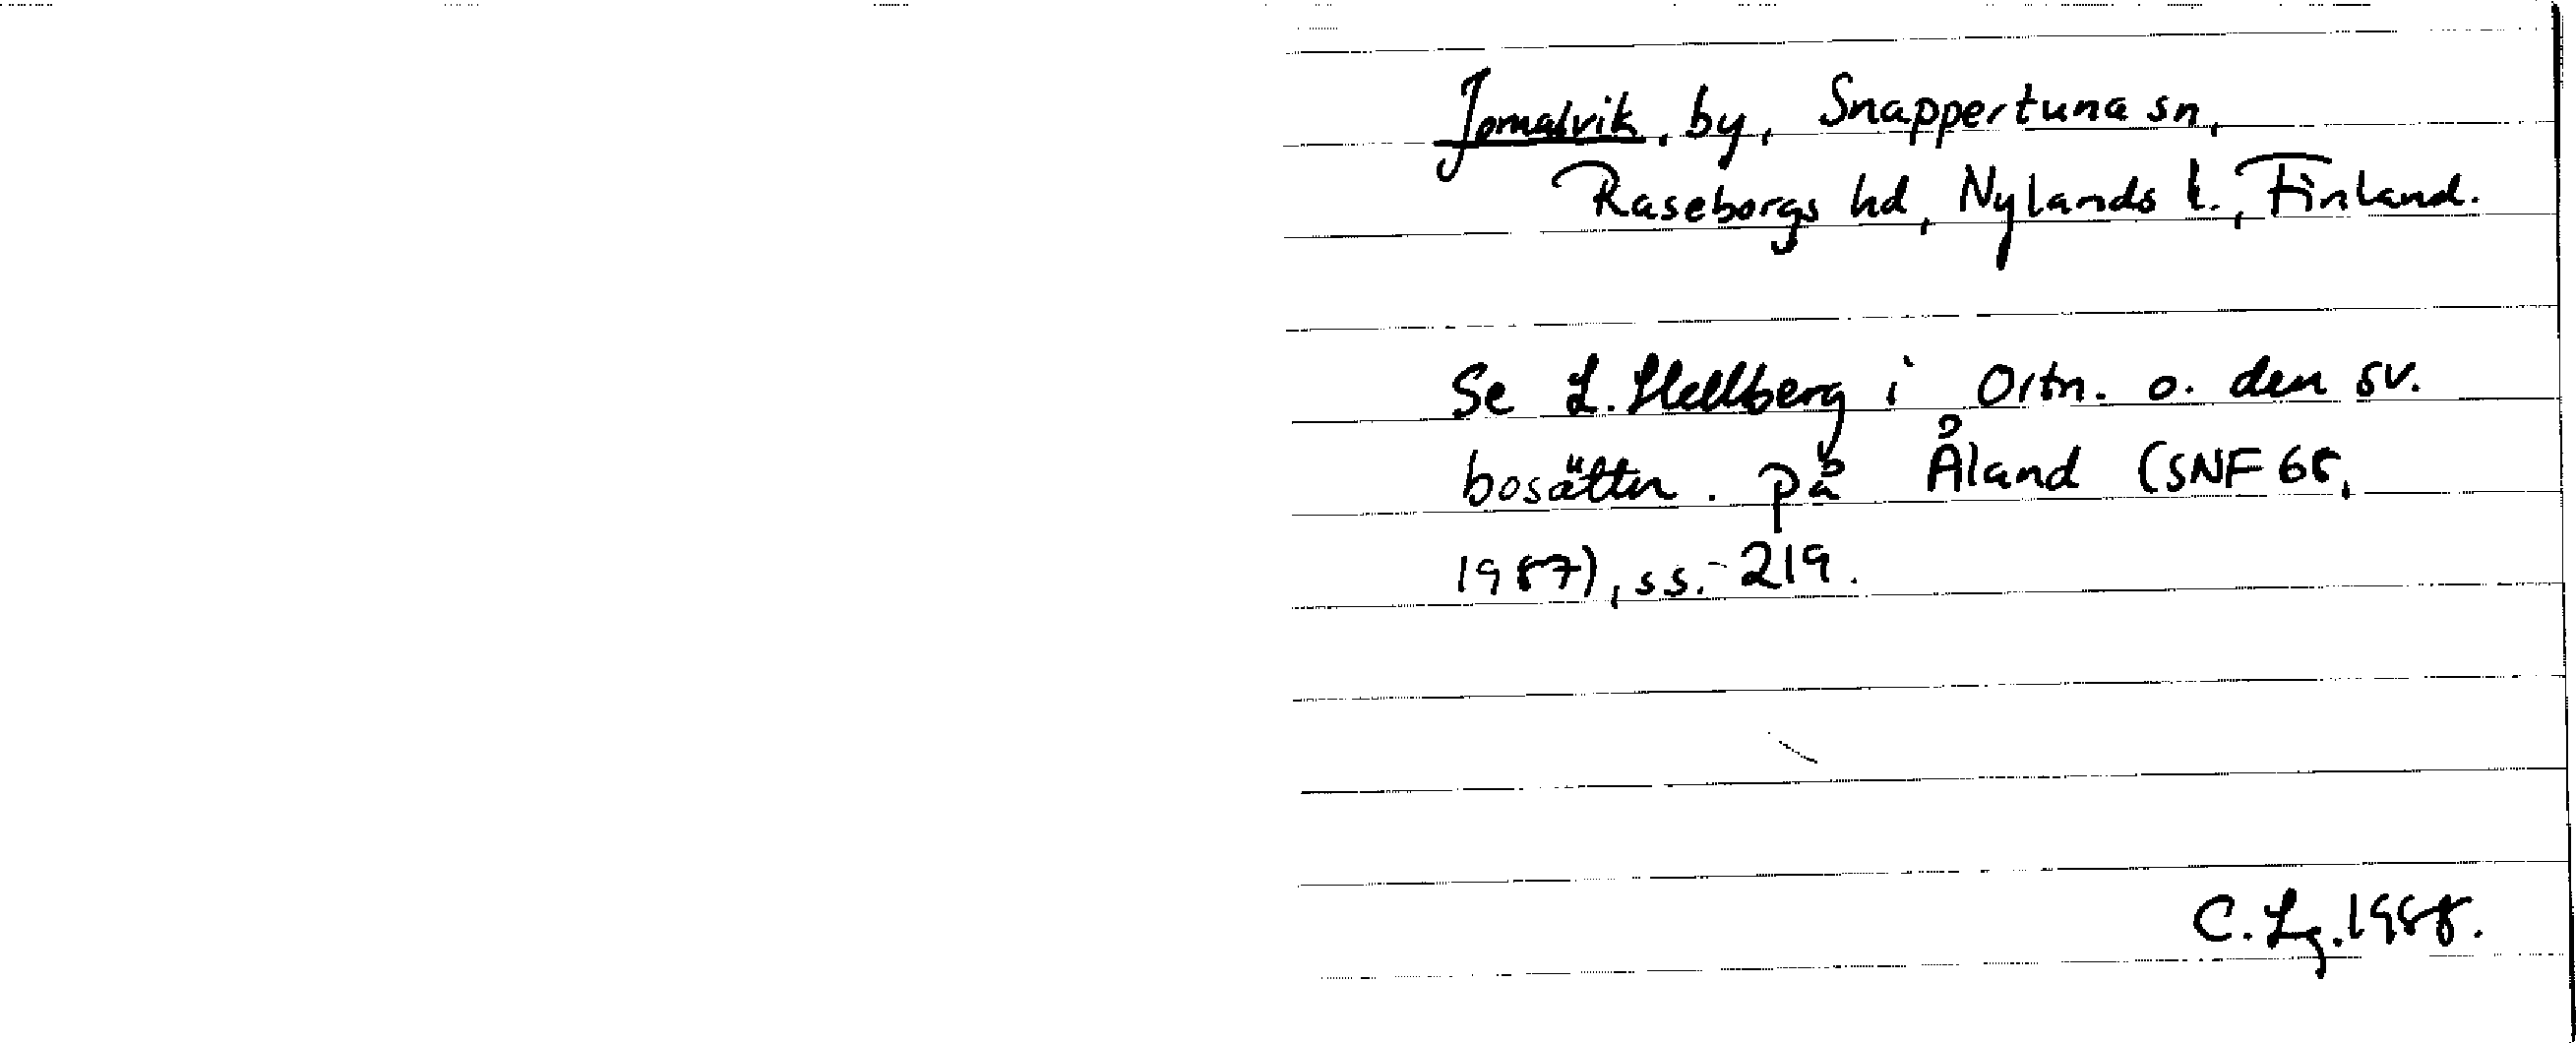 Jomalvik, by, Snappertuna sn,
Raseborgs hd, Nylands l., Finland.
Se L. Hellberg i Ortn. o. den sv.
bosättn. på Åland (SNF 68,
1987), ss. 219.
C. Lg. 1988.